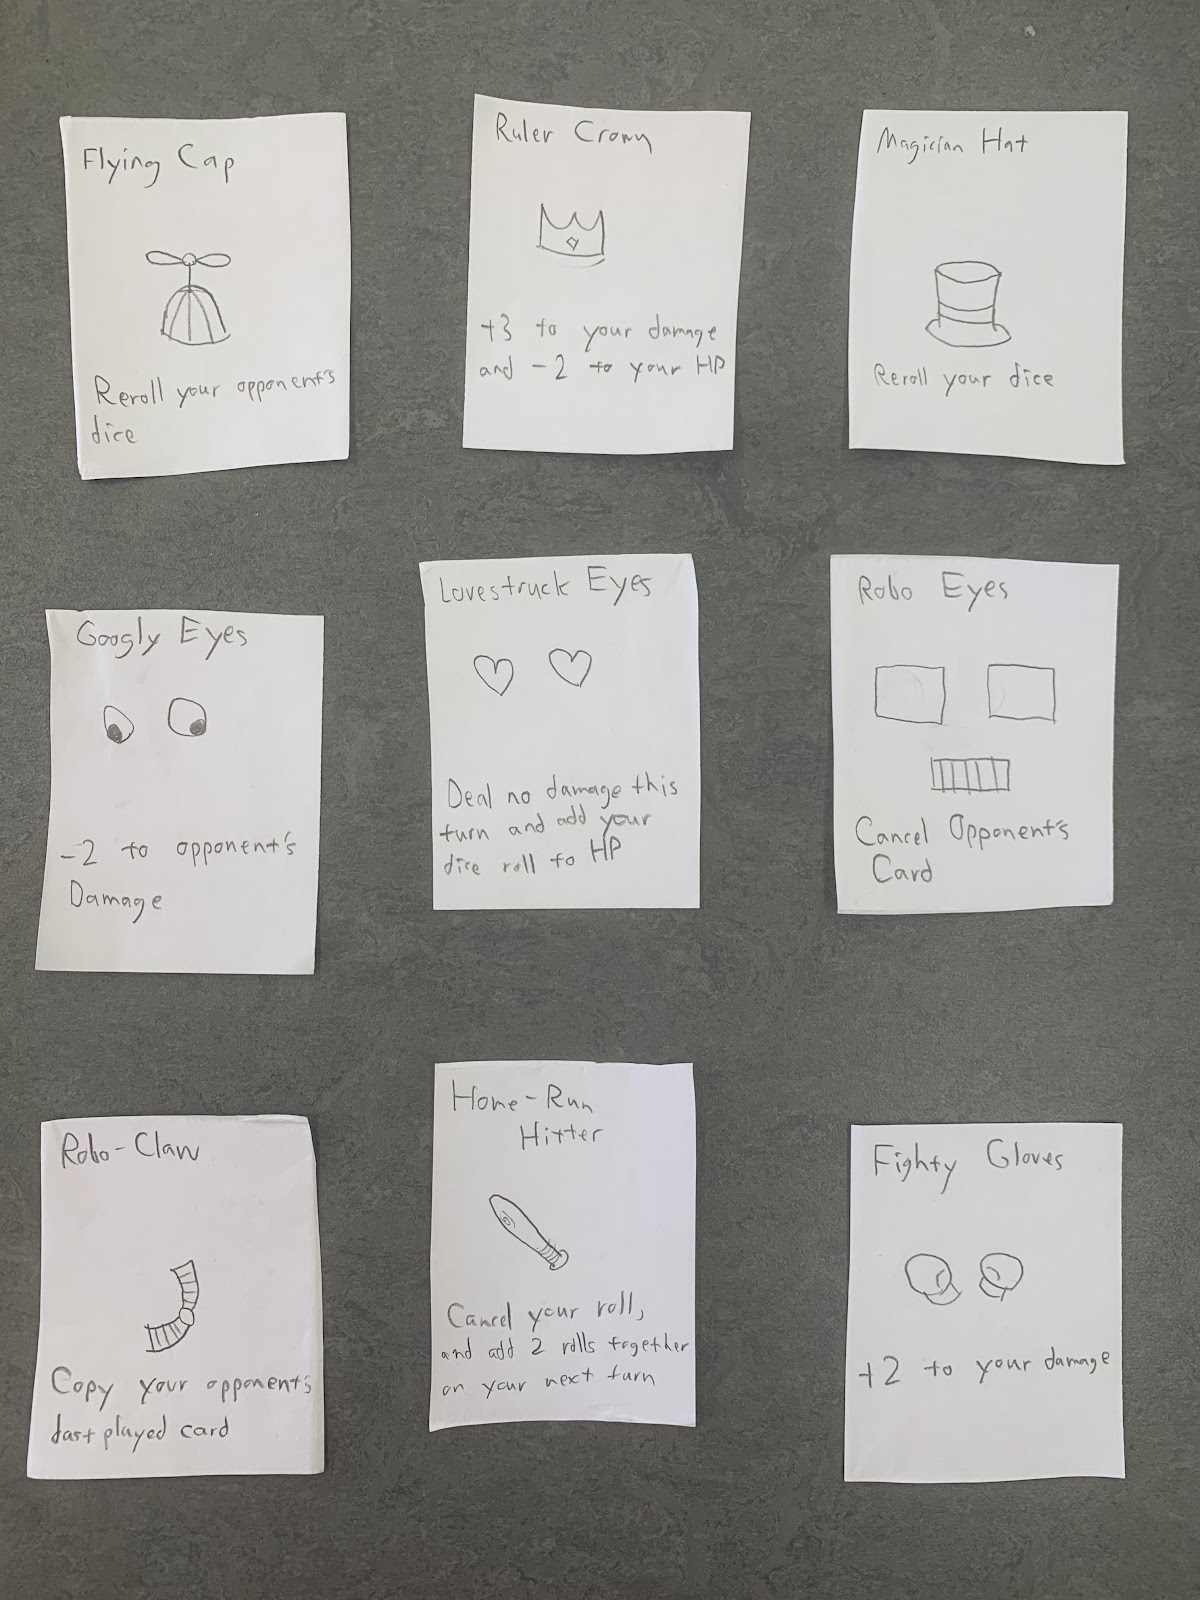 Flying Cap
Reroll your opponent's
dice
Ruler Crown
+3 to your damage
and -2 to your HP
Magician Hat
Reroll your dice
Googly Eyes
-2 to opponent's
Damage
Lovestruck Eyes
Deal no damage this
turn and add your
dice roll to HP
Robo Eyes
Cancel Opponent's
Card
Robo-Claw
Copy your opponent's
last played card
Home-Run
Hitter
Cancel your roll,
and add 2 rolls together
on your next turn
Fighty Gloves
+2 to your damage